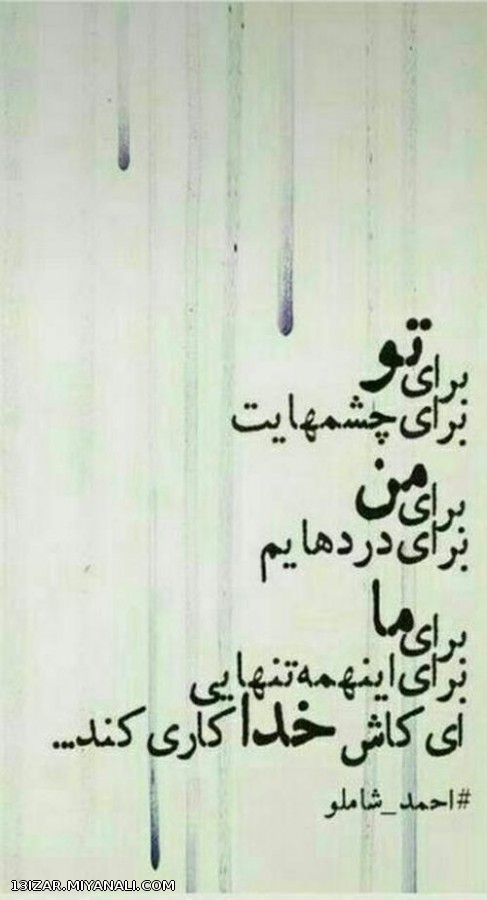 برای تو
برای چشمهایت
برای من
برای دردهایم
برای ما
برای اینهمه تنهایی
ای کاش خدا کاری کند...
#احمد_شاملو
13IZAR.MIYANALI.COM